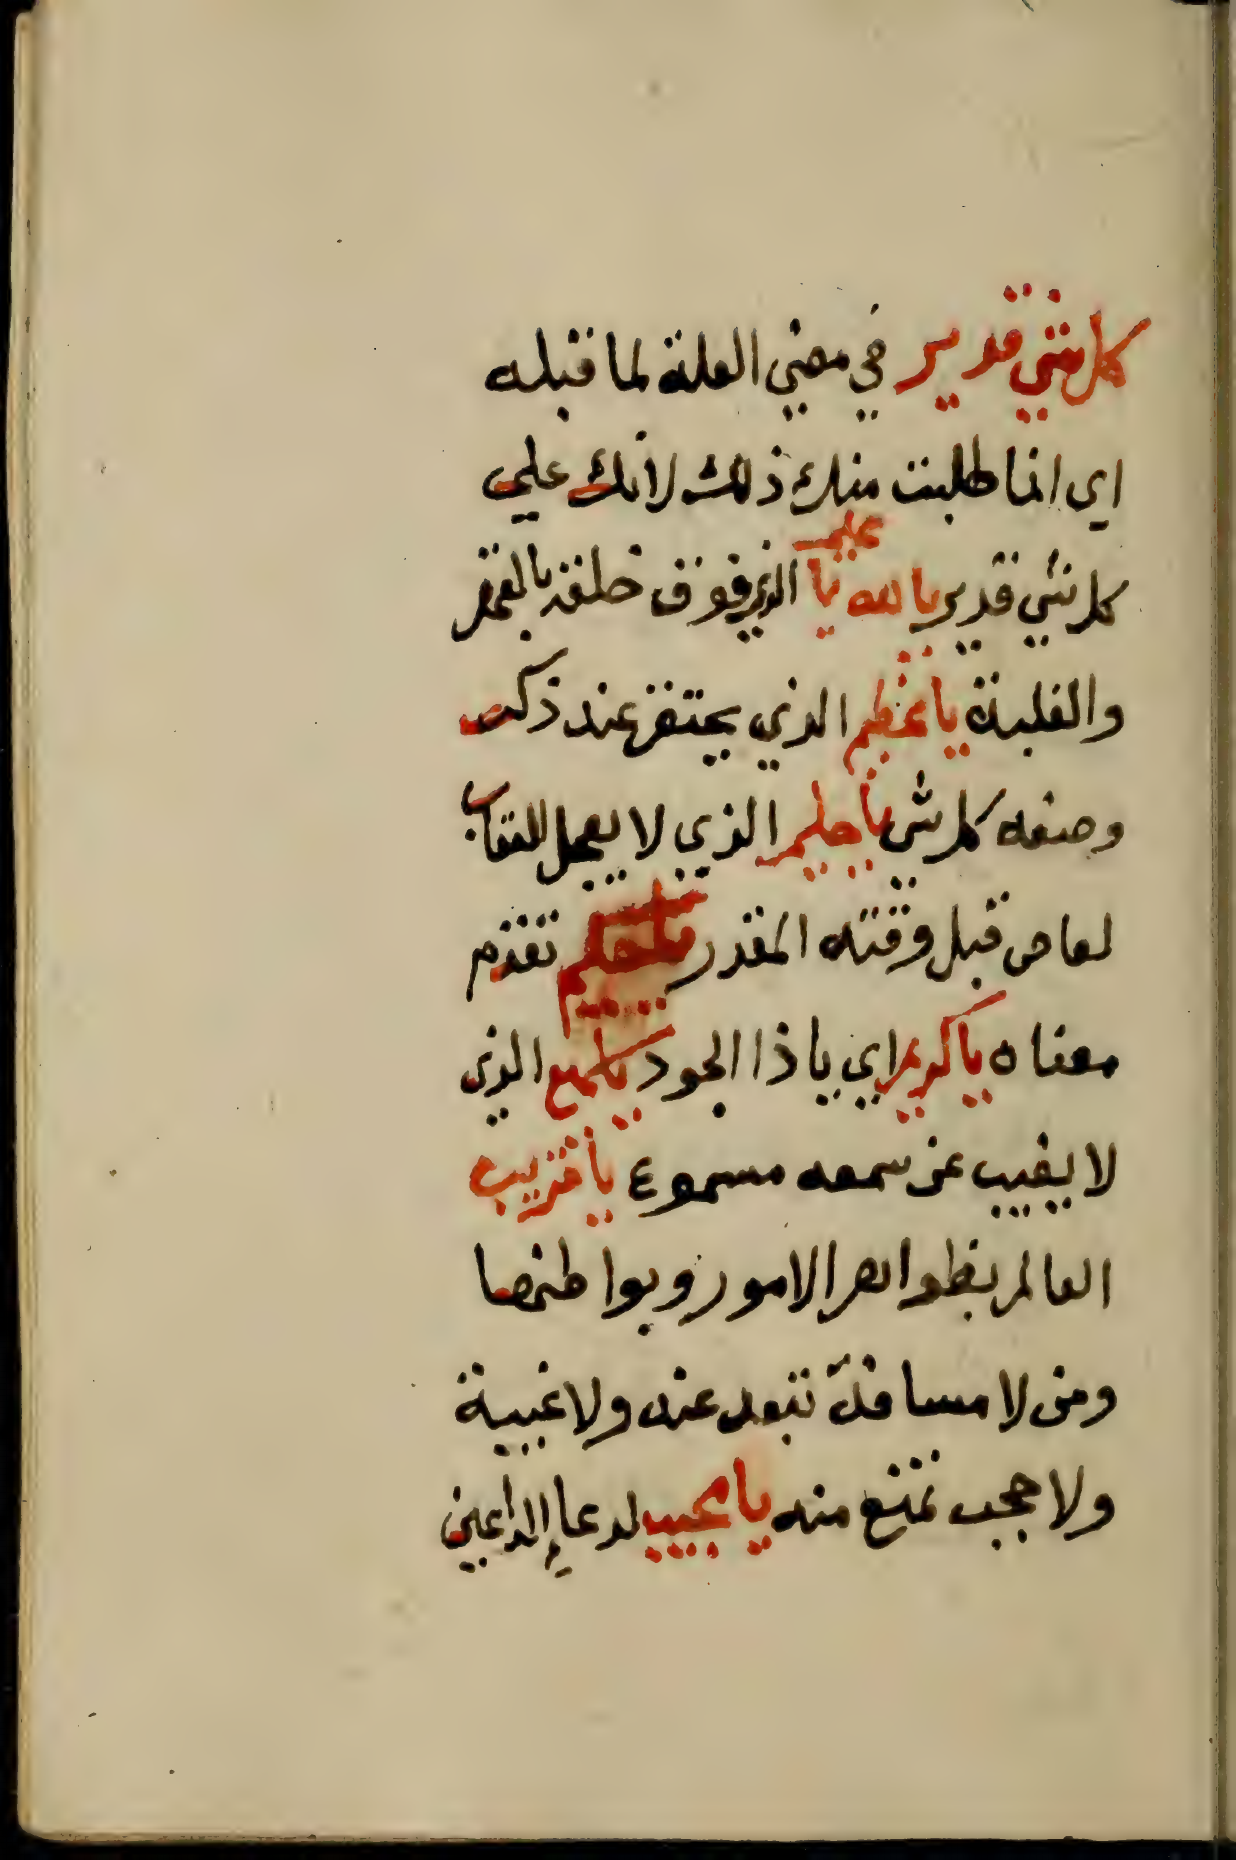 كل شي قدير في معني العلة لما قبله
اي انما طلبت منك ذلك لانك علي
كل شي قدير يا الله يا علي الذي فوق خلقه بالقهر
والغلبة يا عظيم الذي يحتقر عند ذكر
وصفه كل شي يا حليم الذي لا يعجل العقاب
لعاص قبل وقته المقدر يا حليم تقدم
معناه يا كريم اي يا ذا الجود يا سميع الذي
لا يغيب عن سمعه مسموع يا قريب
العالم بظواهر الامور وبواطنها
ومن لا مسافة تبعد عنه ولا غيبة
ولا حجب تمنع منه يا مجيب لدعاء الداعين